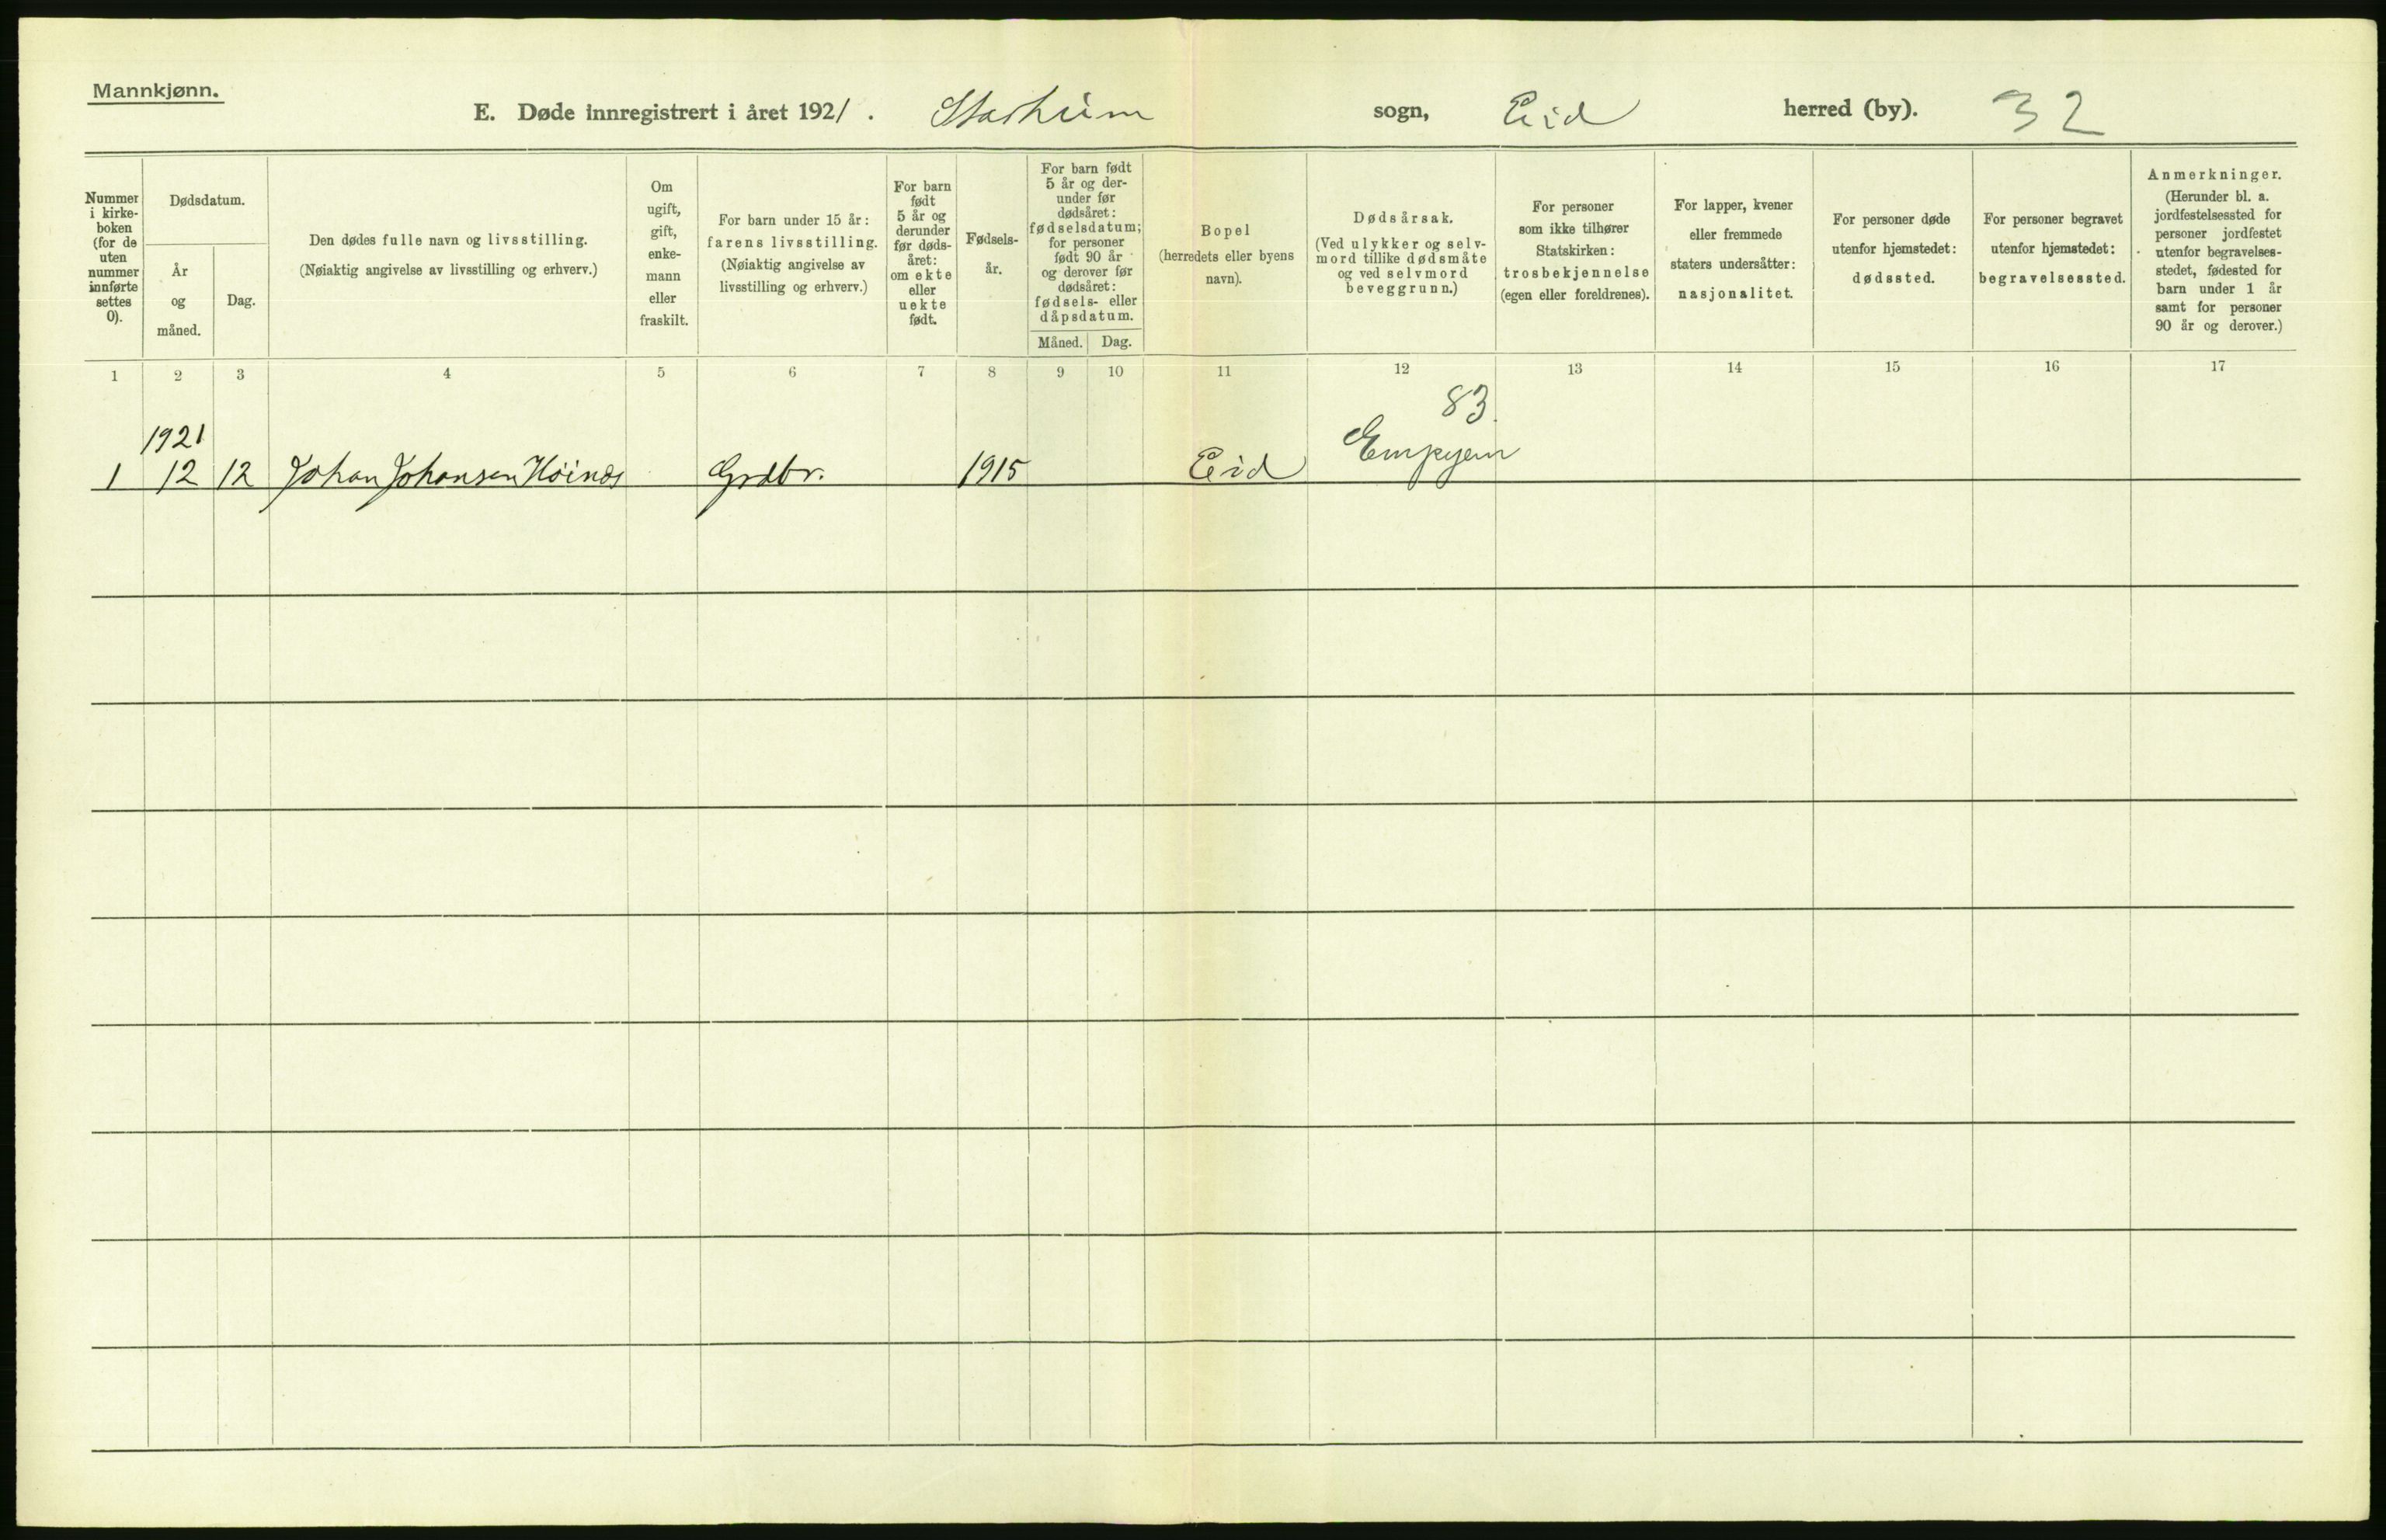 Mannkjønn.
E. Døde innregistrert i året 1921. Starheim sogn, Eid herred (by). 32
Nummer
i kirke-
boken
(for de
uten
nummer
innførte
settes
0).
Dødsdatum.
År
og
måned.
Dag.
Den dødes fulle navn og livsstilling.
(Nøiaktig angivelse av livsstilling og erhverv.)
Om
ugift,
gift,
enke-
mann
eller
fraskilt.
For barn under 15 år:
farens livsstilling.
(Nøiaktig angivelse av
livsstilling og erhverv.)
For barn
født
5 år og
derunder
før døds-
året:
om ekte
eller
uekte
født.
Fødsels-
år.
For barn født
5 år og der-
under før
dødsåret:
fødselsdatum;
for personer
født 90 år
og derover før
dødsåret:
fødsels- eller
dåpsdatum.
Måned. Dag.
Bopel
(herredets eller byens
navn).
Dødsårsak.
(Ved ulykker og selv-
mord tillike dødsmåte
og ved selvmord
beveggrunn.)
For personer
som ikke tilhører
Statskirken:
trosbekjennelse
(egen eller foreldrenes).
For lapper, kvener
eller fremmede
staters undersåtter:
nasjonalitet.
For personer døde
utenfor hjemstedet:
dødssted.
For personer begravet
utenfor hjemstedet:
begravelsessted.
Anmerkninger.
(Herunder bl. a.
jordfestelsessted for
personer jordfestet
utenfor begravelses-
stedet, fødested for
barn under 1 år
samt for personer
90 år og derover.)
1 2 3 4 5 6 7 8 9 10 11 12 13 14 15 16 17
83
1921
1 12 12 Johan Johansen Höinæs Grdbr. 1915 Eid Empyem